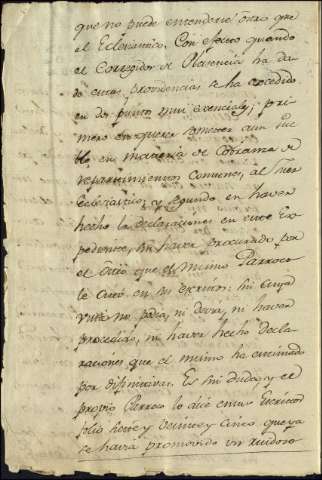 que no puede entenderse otro que
el Eclesiastico. Con efecto quando
el Corregidor de Plasencia ha da
do estas providencias se ha excedido
en dos puntos mui esenciales; pri
mero en querer someter a un Pue
blo, en materia de cobranza de
repartimientos comunes, al Fuero
eclesiastico, y segundo en haver
hecho las declaraciones en este Ex
pediente, sin haver procurado por
el Oficio que el mismo Parroco
le citó en su escritos: sin cuya
vista no podia, ni devia, ni haver
procedido, ni haver hecho decla
raciones que el mismo ha estimado
por difinitivas. Es sin duda, y el
propio Parroco lo dice en su Escrito
folio nueve y veinte y cinco, que ya
se havia promovido un ruidoso